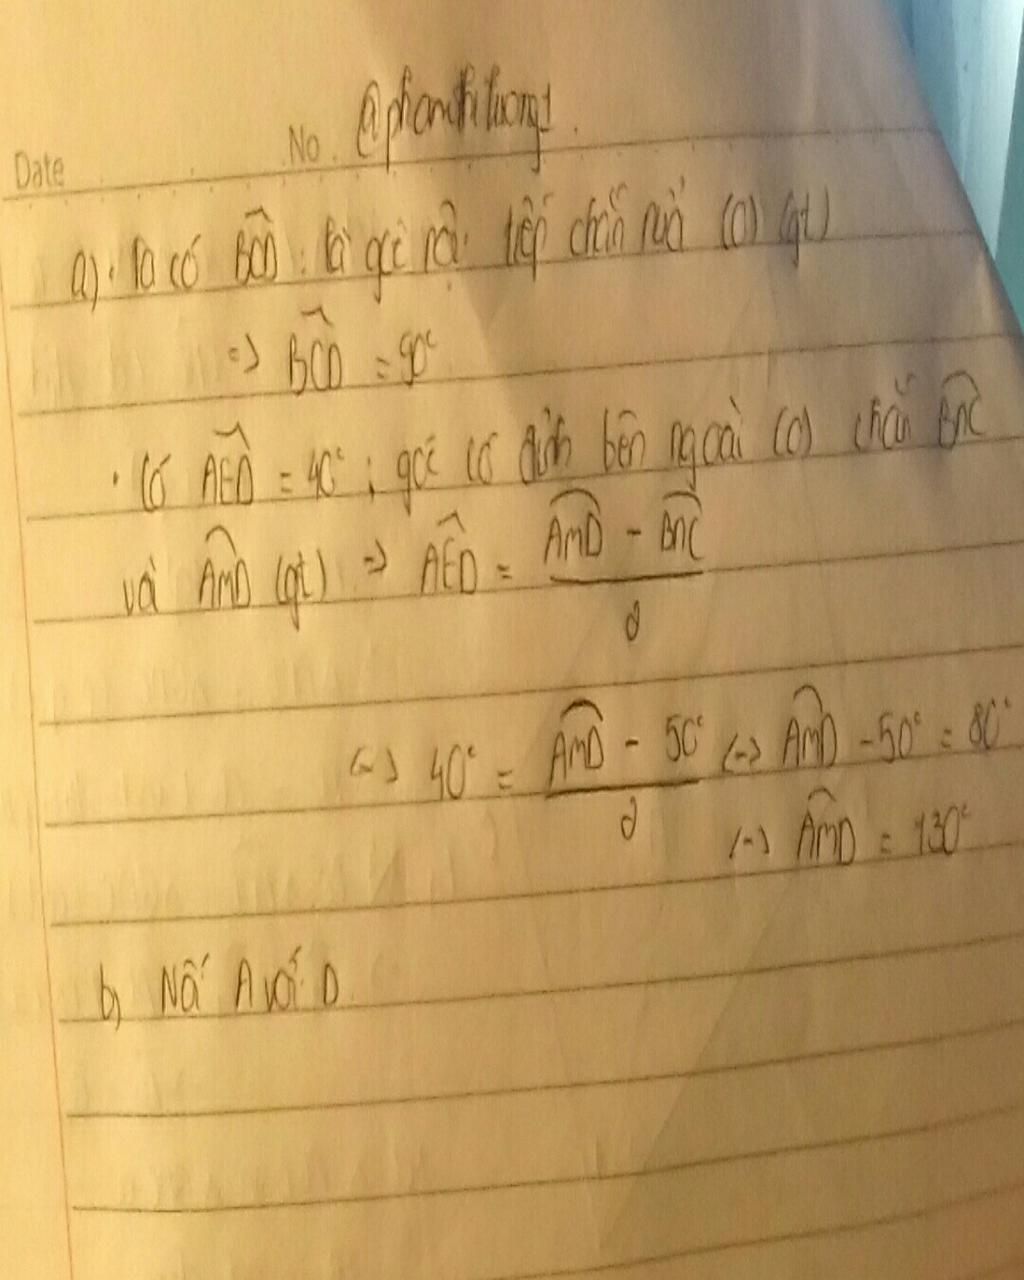 Date No @phamthituong1.
a) . Ta có BCD : là góc nội tiếp chắn nửa (O) (gt)
=> BCD = 90°
. Có AED = 40° ; góc có đỉnh bên ngoài (O) chắn BnC
và AmD (gt) => AED = AmD - BnC / 2
<-> 40° = AmD - 50° / 2 <-> AmD - 50° = 80°
<-> AmD = 130°
b) Nối A với D